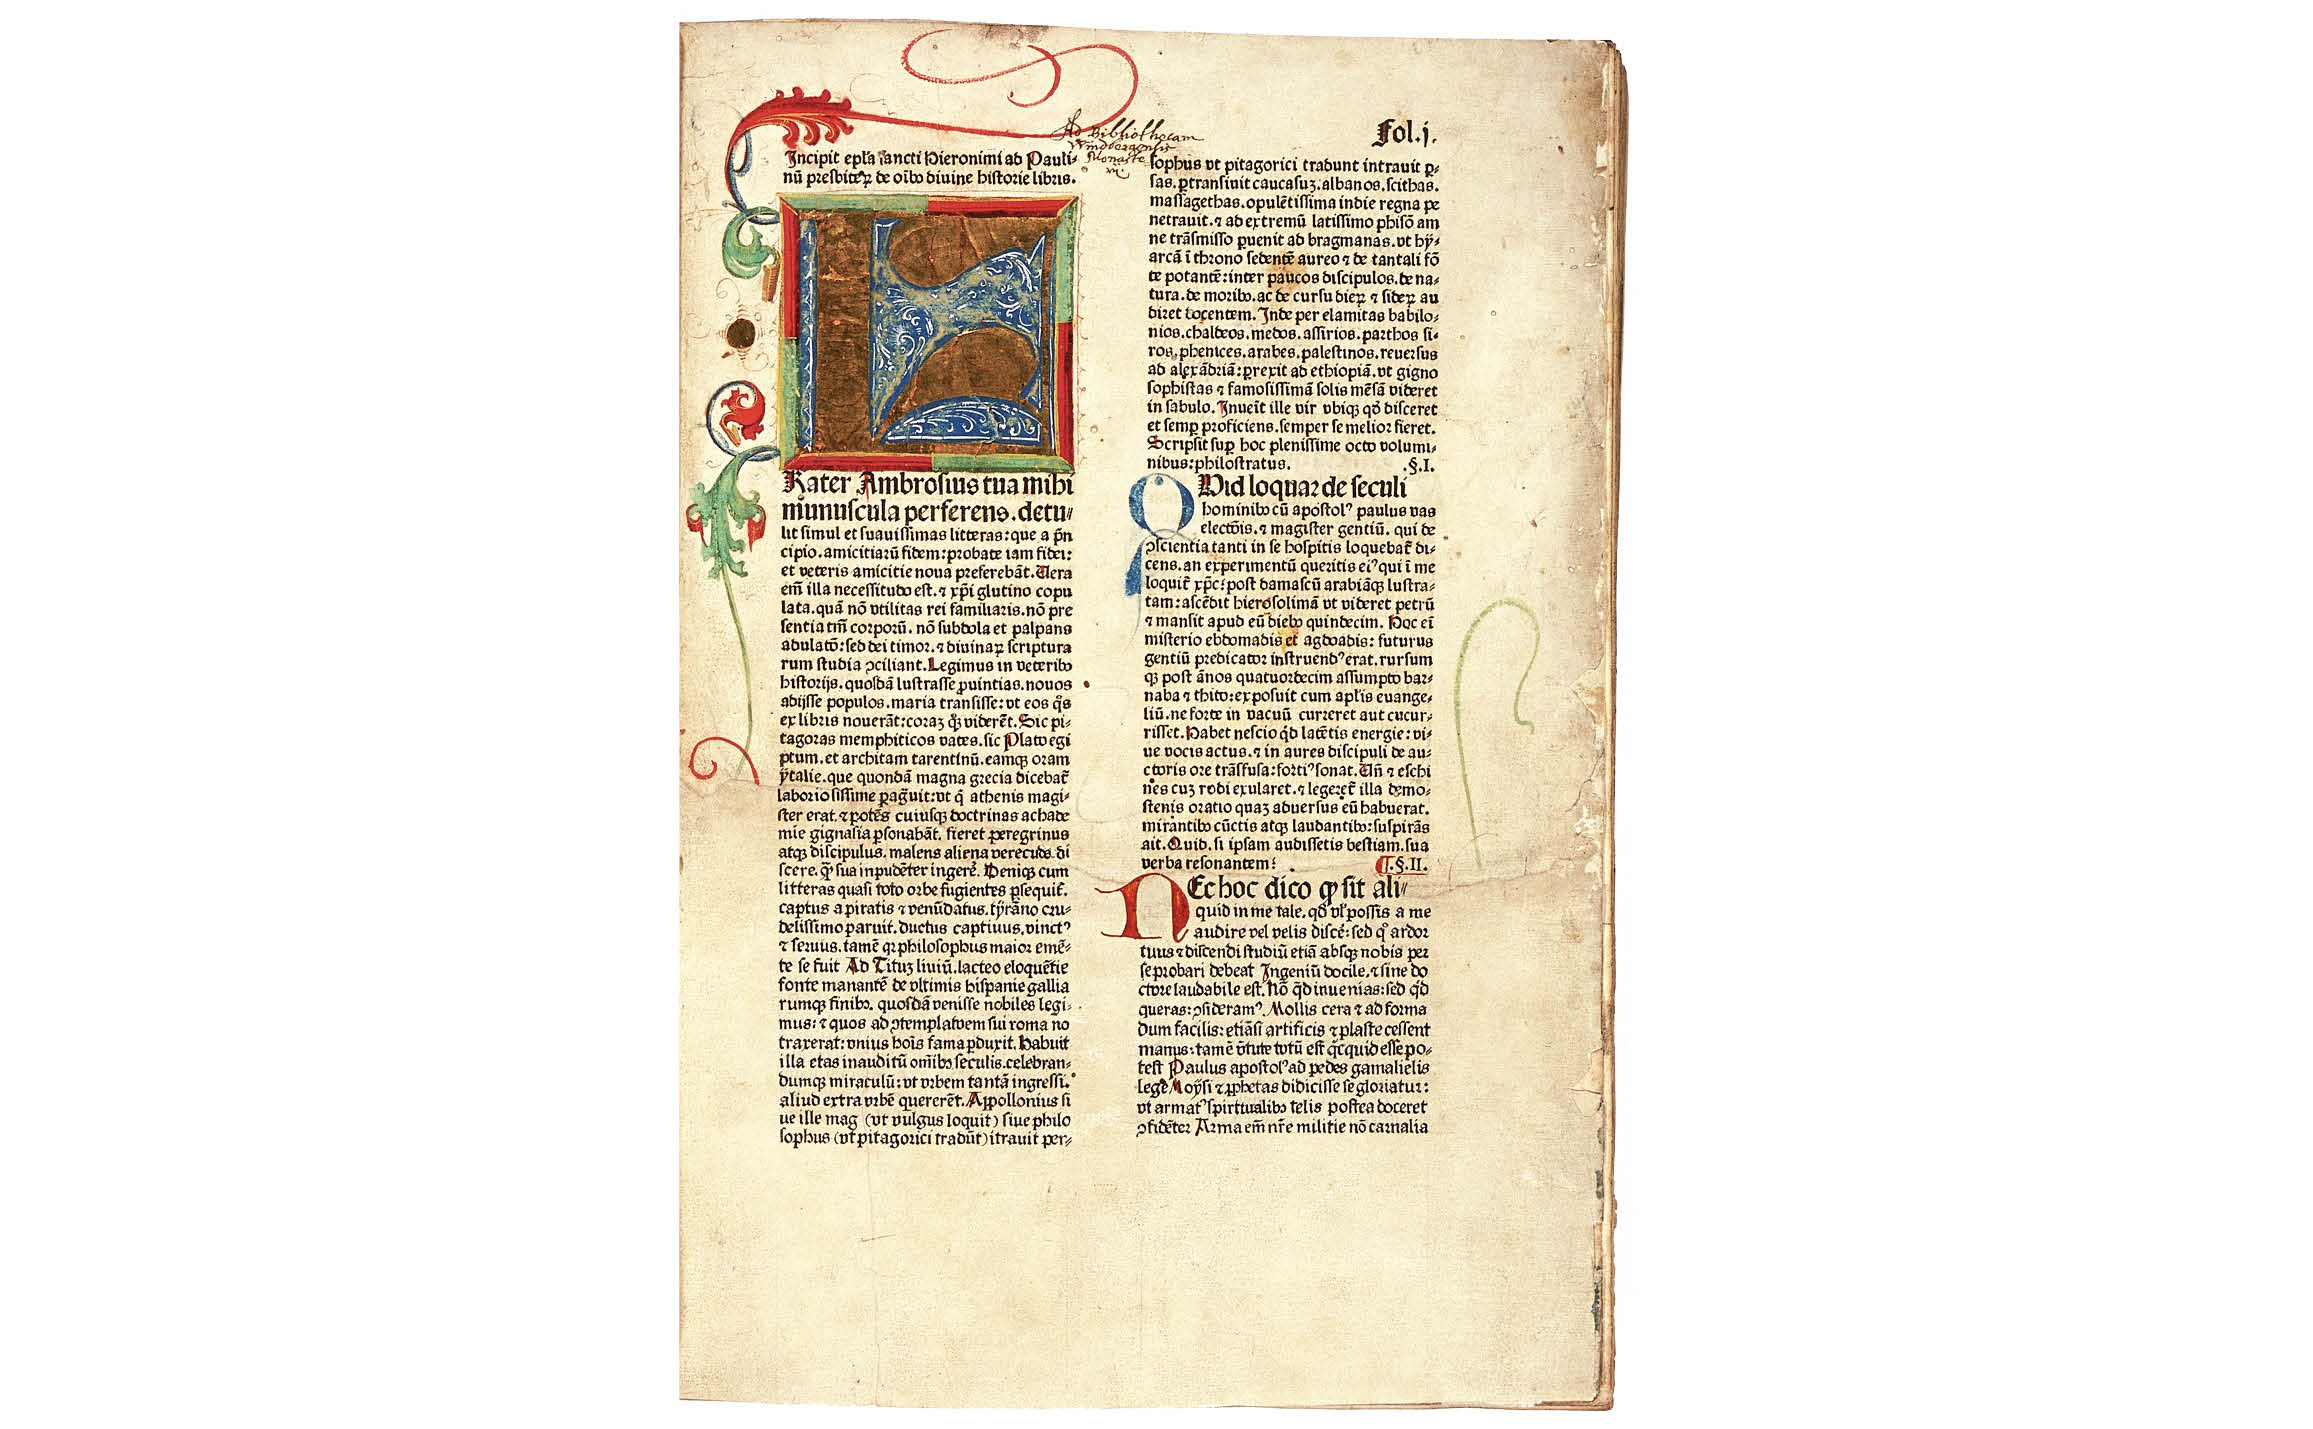 Ad Bibliothecam
Windbergensis
Monaste
Fol.j.
Incipit epl̄a sancti Hieronimi ad Pauli⸗
nū presbiteꝝ de oībꝰ diuine historie libris.
F
Rater Ambrosius tua mihi
munuscula perferens. detu⸗
lit simul et suauissimas litteras: que a p̄n
cipio. amicitiarū fidem: probate iam fidei:
et veteris amicitie noua preferebāt. Uera
em̄ illa necessitudo est. ⁊ xp̄i glutino copu
lata. quā nō vtilitas rei familiaris. nō pre
sentia tm̄ corporū. nō subdola et palpans
adulatō: sed dei timor. ⁊ diuinaꝝ scriptura
rum studia ↄciliant. Legimus in veteribꝰ
historijs. quosdā lustrasse ꝓuintias. nouos
adijsse populos. maria transisse: vt eos q̊s
ex libris nouerāt: coraꝫ qͦꝫ viderēt. Sic pi⸗
tagoras memphiticos vates. sic Plato egi
ptum. et architam tarentinū. eamqꝫ oram
ÿtalie. que quondā magna grecia dicebat̄
laboriosissime ꝑag̃uit: vt q̄ athenis magi⸗
ster erat. ⁊ potēs cuiusqꝫ doctrinas achade
mie gignasia ꝑsonabāt. fieret peregrinus
atqꝫ discipulus. malens aliena verecūde di
scere. qͣꝫ sua inpudēter ingerē. Deniqꝫ cum
litteras quasi toto orbe fugientes ꝑsequit̄.
captus a piratis ⁊ venūdatus. tÿrāno cru⸗
delissimo paruit. ductus captiuus. vinctꝰ
⁊ seruus. tamē qꝛ philosophus maior emē⸗
te se fuit Ad Tituꝫ liuiū. lacteo eloquētie
fonte manantē de vltimis hispanie gallia
rumqꝫ finibꝰ. quosdā venisse nobiles legi⸗
mus: ⁊ quos ad ↄtemplatōem sui roma no
traxerat: vnius hoīs fama ꝑduxit. Habuit
illa etas inauditū om̄ibꝰ seculis. celebran⸗
dumqꝫ miraculū: vt vrbem tantā ingressi.
aliud extra vrbē quererēt. Appollonius si
ue ille mag (vt vulgus loquit) siue philo
sophus (vt pitagorici tradūt) itrauit per⸗
sophus vt pitagorici tradunt intrauit ꝑ⸗
sas. ꝑtransiuit caucasuꝫ. albanos. scithas.
massagethas. opulētissima indie regna pe
netrauit. ⁊ ad extremū latissimo phisō am
ne trāsmisso ꝑuenit ad bragmanas. vt hÿ⸗
arcā ī throno sedentē aureo ⁊ de tantali fō
te potantē: inter paucos discipulos. de na⸗
tura. de moribꝰ. ac de cursu dieꝝ ⁊ sideꝝ au
diret docentem. Inde per elamitas babilo⸗
nios. chaldeos. medos. assirios. parthos si⸗
ros. phenices. arabes. palestinos. reuersus
ad alexādriā: ꝑrexit ad ethiopiā. vt gigno
sophistas ⁊ famosissimā solis mēsā videret
in sabulo. Inuēit ille vir vbiqꝫ qd̄ disceret
et semꝑ proficiens. semper se melior fieret.
Scripsit suꝑ hoc plenissime octo volumi⸗
nibus: philostratus. .§.I.
QUid loquar de seculi
hominibꝰ cū apostolꝰ paulus vas
electōis. ⁊ magister gentiū. qui de
ↄscientia tanti in se hospitis loquebat̄ di⸗
cens. an experimentū queritis eiꝰ qui ī me
loquit̄ xp̄c: post damascū arabiāqꝫ lustra⸗
tam: ascēdit hierosolimā vt videret petrū
⁊ mansit apud eū diebꝰ quindecim. Hoc ei̅
misterio ebdomadis et agdoadis: futurus
gentiū predicator instruendꝰ erat. rursum
qꝫ post ānos quatuordecim assumpto bar⸗
naba ⁊ thito: exposuit cum apl̄is euange⸗
liū. ne forte in vacuū curreret aut cucur⸗
risset. Habet nescio qd̄ latētis energie: vi⸗
ue vocis actus. ⁊ in aures discipuli de au⸗
ctoris ore trāsfusa: fortiꝰ sonat. Uñ ⁊ eschi
nes cuꝫ rodi exularet. ⁊ legeret̄ illa demo⸗
stenis oratio quaꝫ aduersus eū habuerat.
mirantibꝰ cūctis atqꝫ laudantibꝰ: suspirās
ait. Quid. si ipsam audissetis bestiam. sua
verba resonantem? ¶.§.II.
NEc hoc dico ꝙ sit ali⸗
quid in me tale. qd̄ vl̓ possis a me
audire vel velis discē: sed qͦ ardor
tuus ⁊ discendi studiū etiā absqꝫ nobis per
se probari debeat Ingeniū docile. ⁊ sine do
ctore laudabile est. Nō qd̄ inuenias: sed qd̄
queras: ↄsideramꝰ. Mollis cera ⁊ ad forma
dum facilis: etiāsi artificis ⁊ plaste cessent
manus: tamē v̄tute totū est qͥcquid esse po⸗
test Paulus apostolꝰ ad pedes gamalielis
legē Moÿsi ⁊ ꝓphetas didicisse se gloriatur:
vt armatꝰ spiritualibꝰ telis postea doceret
ↄfidēter Arma em̄ nr̄e militie nō carnalia